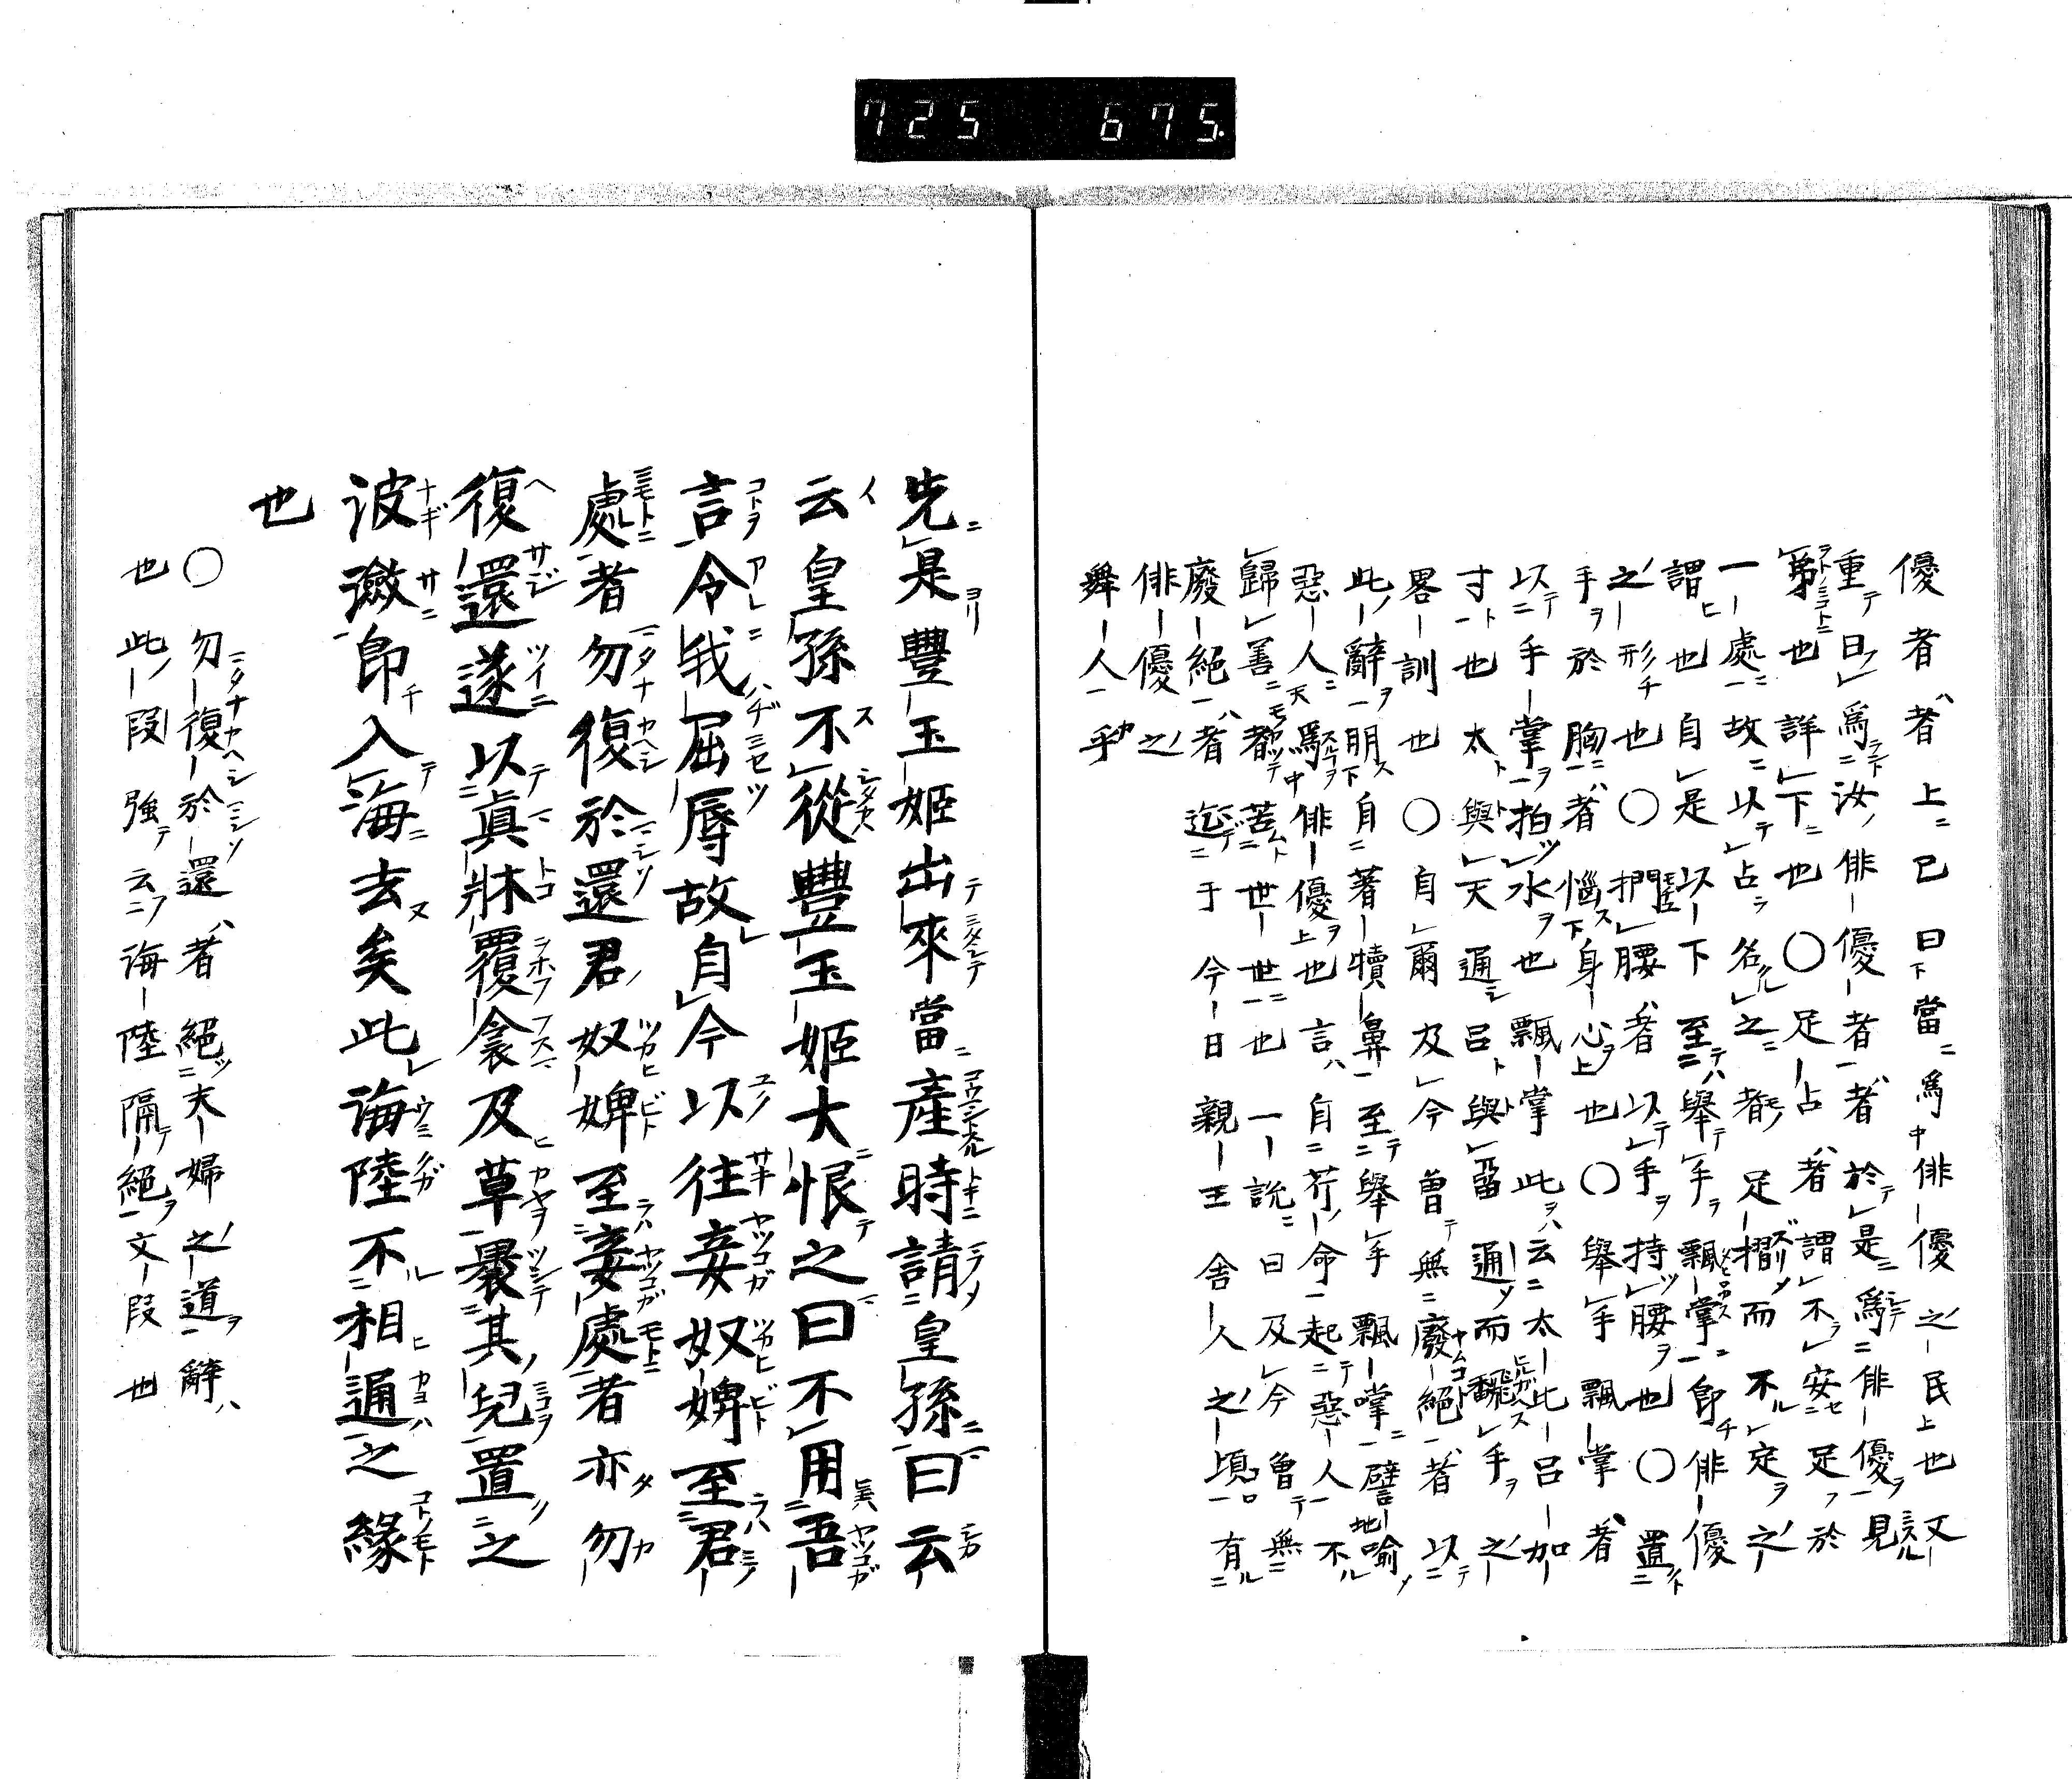 725 675.
優者者上已曰當爲俳優之民上也又
重曰爲汝俳優者者於是爲俳優見
弟也詳下也〇足占者謂不安足於
一處故以占名之者足摺而不定之
謂也自是以下至舉手飄掌即俳優
之形也〇捫腰者以手持腰也〇置
手於胸者惱身心也〇舉手飄掌者
以手掌拍水也飄掌此云太此呂加
寸也太與天通呂與畱通而飜手之
畧訓也〇自爾及今曾無廢絕者以
此辭朋自著犢鼻至舉手飄掌譬喻
惡人爲俳優也言自芥命起惡人不
歸善都苦世世也一說曰及今曾無
廢絕者迄于今日親王舍人之頃有
俳優之
舞人乎
先是豐玉姬出來當產時請皇孫曰云
云皇孫不從豐玉姬大恨之曰不用吾
言令我屈辱故自今以往妾奴婢至君
處者勿復於還君奴婢至妾處者亦勿
復還遂以眞牀覆衾及草褁其兒置之
波瀲卽入海去矣此海陸不相通之緣
也
〇勿復於還者絕夫婦之道辭
也此段強云海陸隔絕文段也